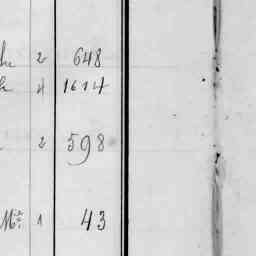 2 648
4 1614
2 598
M.ie 1 43